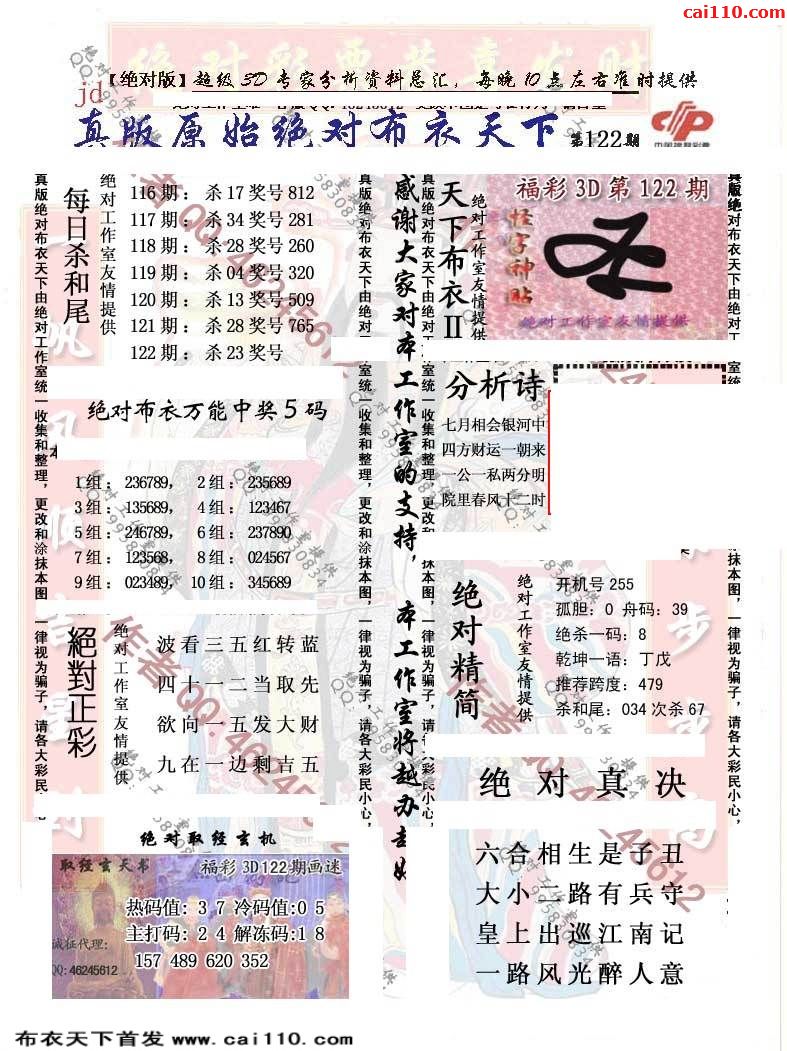 cai110.com
【绝对版】超级3D专家分析资料总汇，每晚10点左右准时提供
jd
真版原始绝对布衣天下 第122期
中国福利彩票
每日杀和尾
绝对工作室友情提供
116期：杀17奖号812
117期：杀34奖号281
118期：杀28奖号260
119期：杀04奖号320
120期：杀13奖号509
121期：杀28奖号765
122期：杀23奖号
真版绝对布衣天下由绝对工作室统一收集和整理，更改和涂抹本图，一律视为骗子，请各大彩民小心，
绝对布衣万能中奖5码
1组：236789， 2组：235689
3组：135689， 4组：123467
5组：246789， 6组：237890
7组：123568， 8组：024567
9组：023489， 10组：345689
絕對正彩
绝对工作室友情提供
波看三五红转蓝
四十一二当取先
欲向一五发大财
九在一边剩吉五
绝对取经玄机
取经玄天书
福彩3D122期画迷
热码值: 3 7 冷码值:0 5
主打码: 2 4 解冻码:1 8
157 489 620 352
诚征代理:
QQ:46245612
真版绝对布衣天下由绝对工
感谢大家对本工作室的支持，本工作室将越办越好
真版绝对布衣天下由绝对工作室统一收集和整理，更改和涂抹本图，一律视为骗子，请各大彩民小心，
天下布衣II
绝对工作室友情提供
福彩3D第122期
怪字神贴
绝对工作室友情提供
分析诗
七月相会银河中
四方财运一朝来
一公一私两分明
院里春风十二时
绝对精简
绝对工作室友情提供
开机号255
孤胆：0 舟码：39
绝杀一码：8
乾坤一语：丁戊
推荐跨度：479
杀和尾：034 次杀67
绝对真决
六合相生是子丑
大小二路有兵守
皇上出巡江南记
一路风光醉人意
作者QQ:46245612
布衣天下首发 www.cai110.com